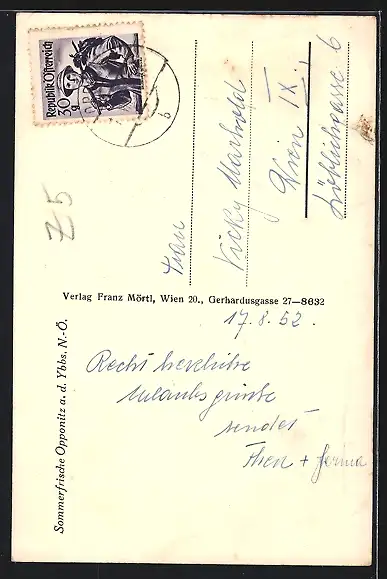 Republik Österreich
30 g
Z5
Frau
Vicky Marhold
Wien IX.,
Löblichgasse 6
Verlag Franz Mörtl, Wien 20., Gerhardusgasse 27—8632
Sommerfrische Opponitz a. d. Ybbs, N.-Ö.
17.8.52.
Recht herzliche
Urlaubsgrüße
sendet
+
6